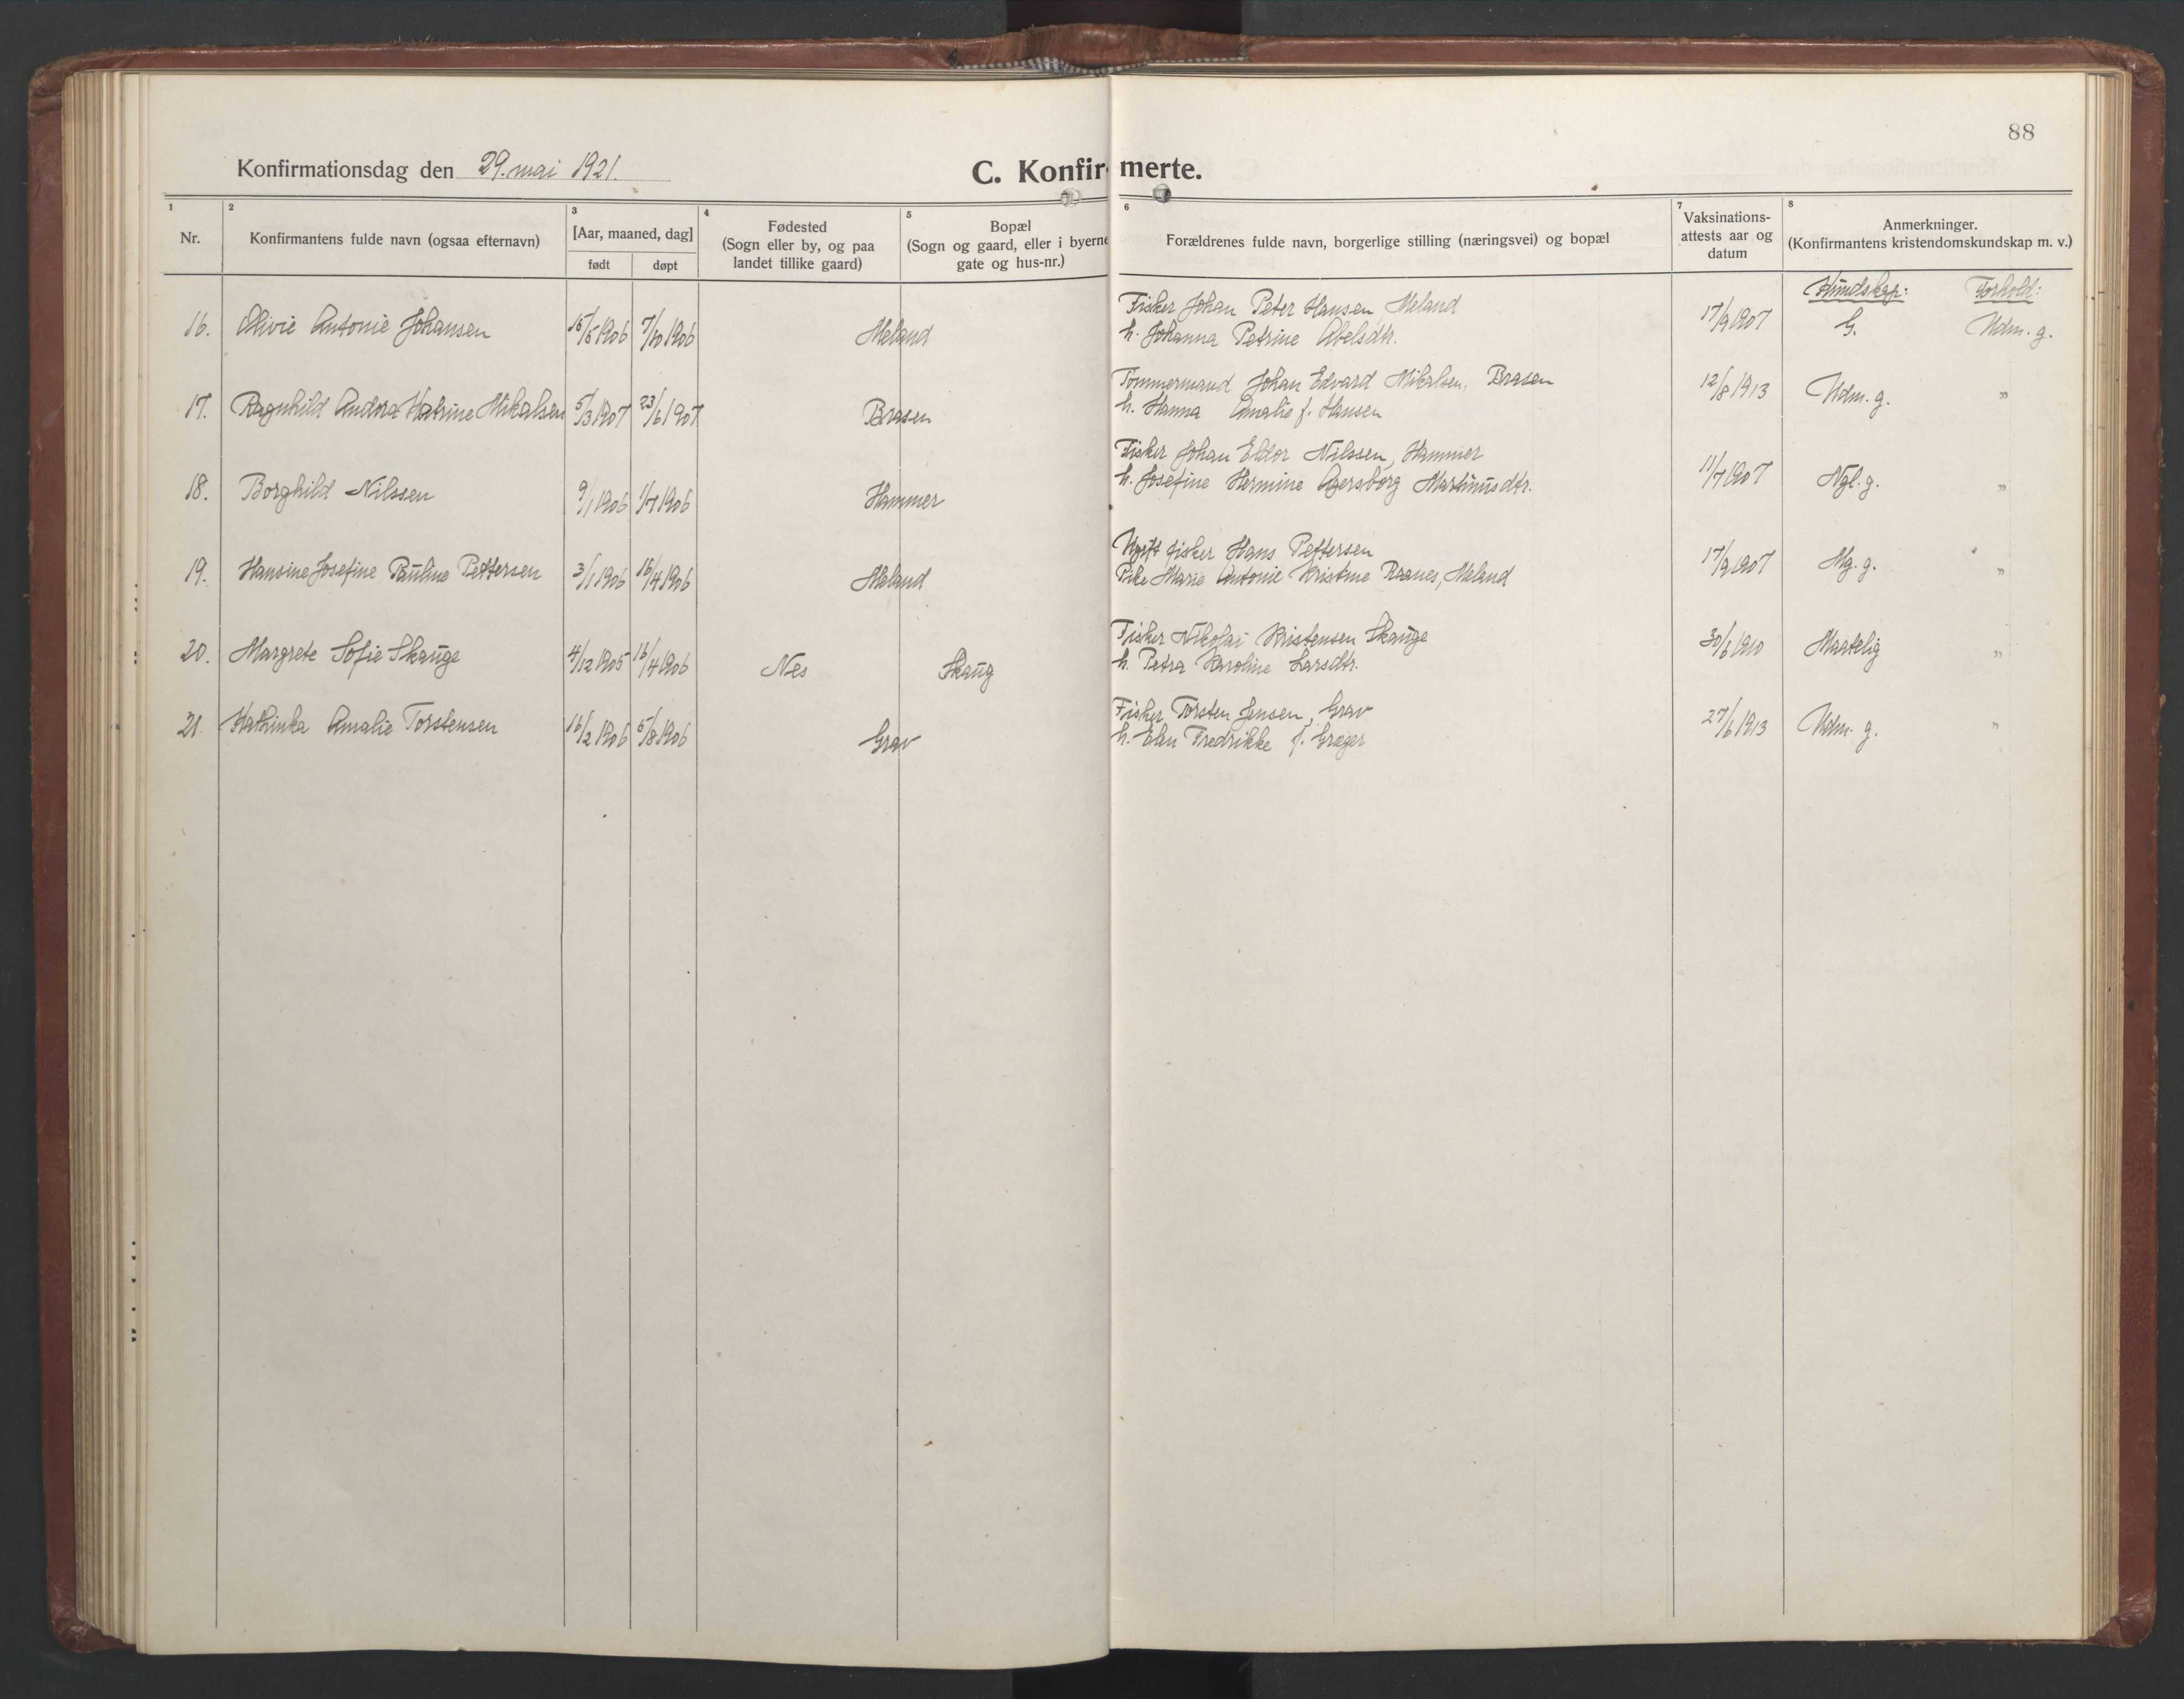 88
Konfirmationsdag den 29. mai 1921.
C. Konfirmerte.
1 2 3 4 5 6 7 8
Nr.
Konfirmantens fulde navn (ogsaa efternavn)
[Aar, maaned, dag]
født døpt
Fødested
(Sogn eller by, og paa
landet tillike gaard)
Bopæl
(Sogn og gaard, eller i byerne
gate og hus-nr.)
Forældrenes fulde navn, borgerlige stilling (næringsvei) og bopæl
Vaksinations-
attests aar og
datum
Anmerkninger.
(Konfirmantens kristendomskundskap m. v.)
Kundskap: Forhold:
16. Olivie Antonie Johansen 15/5 1906 7/10 1906 Meland
Fisker Johan Peter Hansen Meland
h. Johanna Petrine Abelsdtr.
17/9 1907 G. Udm. g.
17. Ragnhild Andora Katrine Mikalsen 5/3 1907 23/6 1907 Brasen
Tømmermand Johan Edvard Mikalsen, Brasen
h. Hanna Amalie f. Hansen
12/8 1913 Udm. g. „
18. Borghild Nilssen 9/1 1906 1/7 1906 Hammer
Fisker Johan Eldor Nilssen, Hammer
h. Josefine Hermine Agersborg Martinusdtr.
11/7 1907 Ngl. g. „
19. Hansine Josefine Pauline Pettersen 3/1 1906 16/4 1906 Meland
Ugift fisker Hans Pettersen
Pike Marie Antonie Kristine Ranes, Meland
17/9 1907 Mg. g. „
20. Margrete Sofie Skauge 4/12 1905 16/4 1906 Nes Skaug
Fisker Nikolai Kristensen Skauge
h. Petra Karoline Larsdtr.
30/6 1910 Maatelig „
21. Kathinka Amalie Torstensen 16/2 1906 5/8 1906 Grav
Fisker Torsten Jensen, Grav
h. Elen Fredrikke f. Grøger
27/6 1913 Udm. g. „